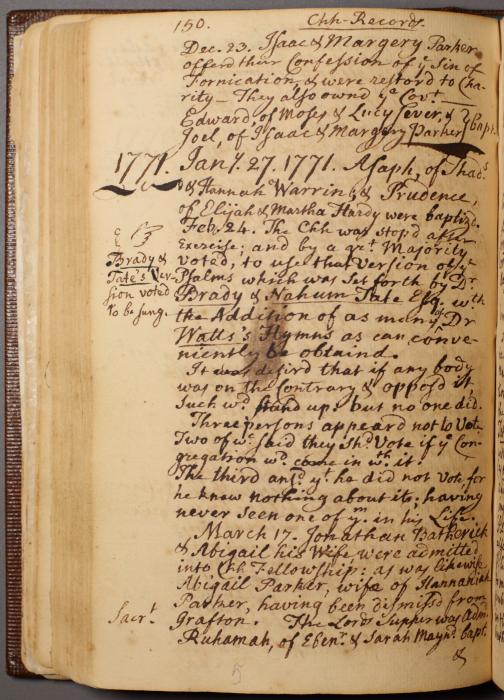 150. Chh-Records.
Dec. 23. Isaac & Margery Parker
offerd their Confession of ye Sin of
Fornication, & were restord to Cha-
rity — They also ownd ye Covt. —
Edward, of Moses & Lucy Sever, & } bapt.
Joel, of Isaac & Margery Parker
1771. Jany. 27. 1771. Asaph, of Thads
& Hannah Warrin, & Prudence,
of Elijah & Martha Hardy were baptizd.
Feb. 24. The Chh was stop'd after
Exercise; and by a grt. Majority
Brady &
Tate's Ver-
sion voted
to be sung.
voted, to use that Version of ye
Psalms which was set forth by Dr.
Brady & Nahum Tate Esq. wth
the Addition of as many of Dr
Watts's Hymns as can conve-
niently be obtaind.
It was desird that if any body
was on the Contrary & opposd it
Such wd. stand up: but no one did.
Three persons appeard not to Vote
Two of wc. said they shd. Vote if ye Con-
gregation wd. come in wth. it.
The third ansd. yt. he did not Vote for
he knew nothing about its; having
never seen one of ym. in his Life.
March 17. Jonathan Batherick
& Abigail his Wife were admitted
into Chh Fellowship: as was likewise
Abigail Parker, wife of Hannaniah
Parker, having been dismissd from
Sacrt.
Grafton. The Lords Supper was Adm.
Ruhamah, of Ebenr. & Sarah Maynd. bapt.
&
5